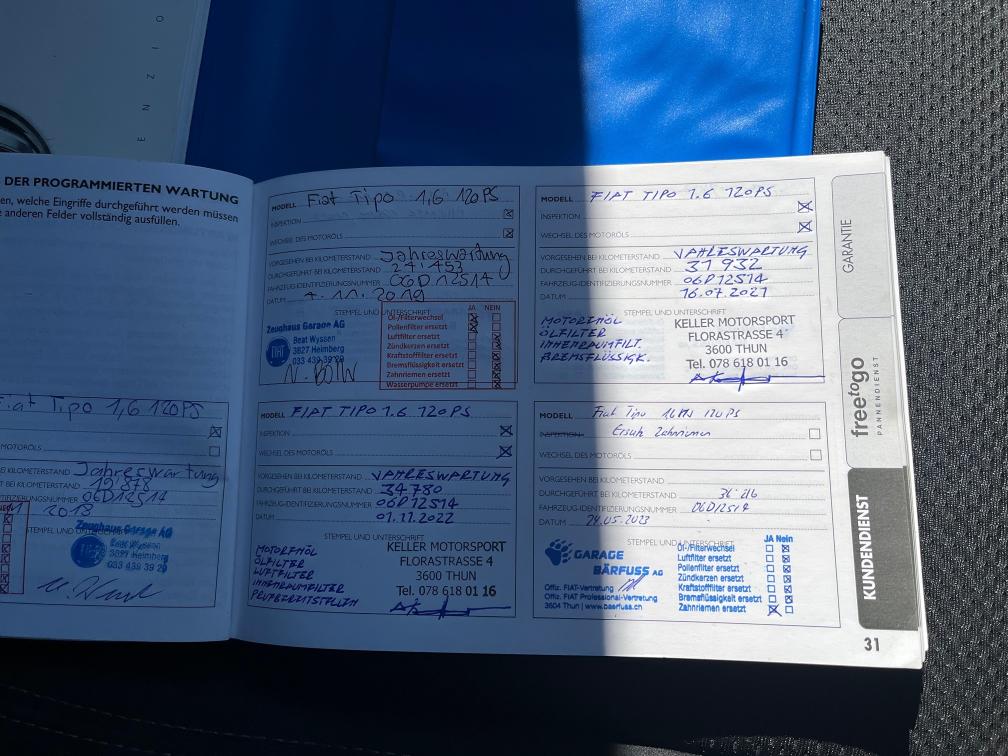 ENZIO
DER PROGRAMMIERTEN WARTUNG
en, welche Eingriffe durchgeführt werden müssen
e anderen Felder vollständig ausfüllen.
Fiat Tipo 1,6 120PS
MOTORÖLS
BEI KILOMETERSTAND Jahreswartung
BEI KILOMETERSTAND 19'878
NTIFIZIERUNGSNUMMER 06D12514
2018
STEMPEL UND UNTERSCHRIFT
Zeughaus Garage AG
Beat Wyssen
3627 Heimberg
033 439 39 29
MODELL Fiat Tipo 1,6 120PS
INSPEKTION
WECHSEL DES MOTORÖLS
VORGESEHEN BEI KILOMETERSTAND Jahreswartung
DURCHGEFÜHRT BEI KILOMETERSTAND 27'457
FAHRZEUG-IDENTIFIZIERUNGSNUMMER 06D12514
DATUM 7.11.2019
STEMPEL UND UNTERSCHRIFT
Zeughaus Garage AG
Beat Wyssen
3627 Heimberg
033 439 39 29
JA NEIN
Öl-/Filterwechsel
Pollenfilter ersetzt
Luftfilter ersetzt
Zündkerzen ersetzt
Kraftstofffilter ersetzt
Bremsflüssigkeit ersetzt
Zahnriemen ersetzt
Wasserpumpe ersetzt
MODELL FIAT TIPO 1.6 120PS
INSPEKTION
WECHSEL DES MOTORÖLS
VORGESEHEN BEI KILOMETERSTAND JAHRESWARTUNG
DURCHGEFÜHRT BEI KILOMETERSTAND 31 932
FAHRZEUG-IDENTIFIZIERUNGSNUMMER 06D12514
DATUM 16.07.2021
STEMPEL UND UNTERSCHRIFT
MOTORENÖL
ÖLFILTER
INNENRAUMFILT.
BREMSFLÜSSIGK.
KELLER MOTORSPORT
FLORASTRASSE 4
3600 THUN
Tel. 078 618 01 16
MODELL FIAT TIPO 1.6 120PS
INSPEKTION
WECHSEL DES MOTORÖLS
VORGESEHEN BEI KILOMETERSTAND JAHRESWARTUNG
DURCHGEFÜHRT BEI KILOMETERSTAND 34 780
FAHRZEUG-IDENTIFIZIERUNGSNUMMER 06D12514
DATUM 01.11.2022
STEMPEL UND UNTERSCHRIFT
MOTORENÖL
ÖLFILTER
LUFTFILTER
INNENRAUMFILTER
KELLER MOTORSPORT
FLORASTRASSE 4
3600 THUN
Tel. 078 618 01 16
MODELL Fiat Tipo 120PS
INSPEKTION Ersatz Zahnriemen
WECHSEL DES MOTORÖLS
VORGESEHEN BEI KILOMETERSTAND
DURCHGEFÜHRT BEI KILOMETERSTAND 36'216
FAHRZEUG-IDENTIFIZIERUNGSNUMMER 06D12514
DATUM 24.05.2023
STEMPEL UND UNTERSCHRIFT
GARAGE
BÄRFUSS AG
Offiz. FIAT-Vertretung
Offiz. FIAT Professional-Vertretung
3604 Thun | www.baerfuss.ch
JA Nein
Öl-/Filterwechsel
Luftfilter ersetzt
Pollenfilter ersetzt
Zündkerzen ersetzt
Kraftstofffilter ersetzt
Bremsflüssigkeit ersetzt
Zahnriemen ersetzt
GARANTIE
freetogo
PANNENDIENST
KUNDENDIENST
31